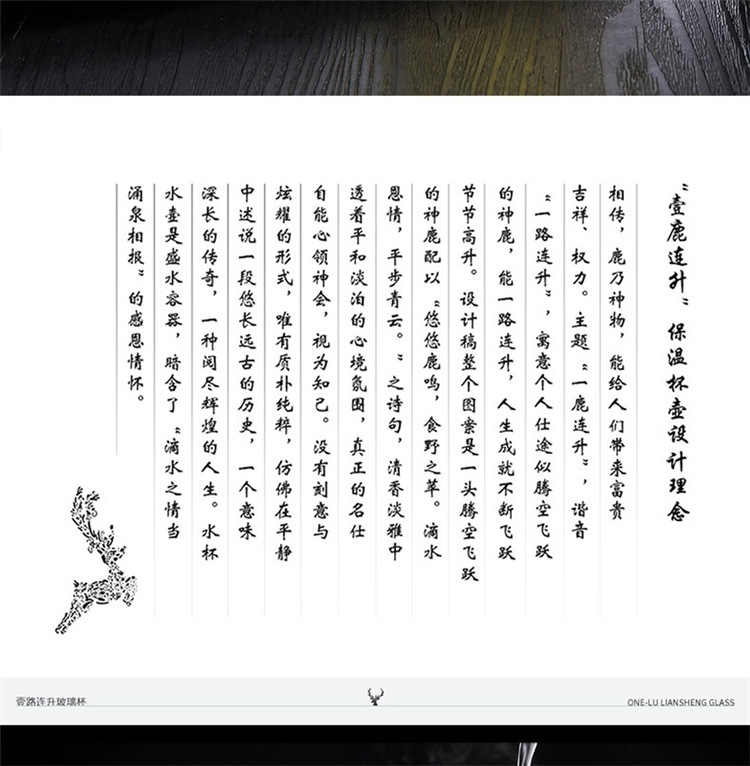 “壹鹿连升”保温杯壶设计理念
相传，鹿乃神物，能给人们带来富贵
吉祥、权力。主题“一鹿连升”，谐音
“一路连升”，寓意个人仕途似腾空飞跃
的神鹿，能一路连升，人生成就不断飞跃
节节高升。设计稿整个图案是一头腾空飞跃
的神鹿配以“悠悠鹿鸣，食野之草。滴水
恩情，平步青云。”之诗句，清香淡雅中
透着平和淡泊的心境氛围，真正的名仕
自能心领神会，视为知己。没有刻意与
炫耀的形式，唯有质朴纯粹，仿佛在平静
中述说一段悠长远古的历史，一个意味
深长的传奇，一种阅尽辉煌的人生。水杯
水壶是盛水容器，暗含了“滴水之情当
涌泉相报”的感恩情怀。
壹路连升玻璃杯
ONE-LU LIANSHENG GLASS